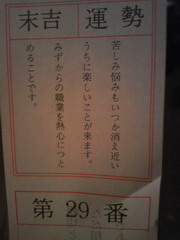 末吉 運勢
苦しみ悩みもいつか消え近い
うちに楽しいことが来ます。
みずからの職業を熱心につと
めることです。
第29番